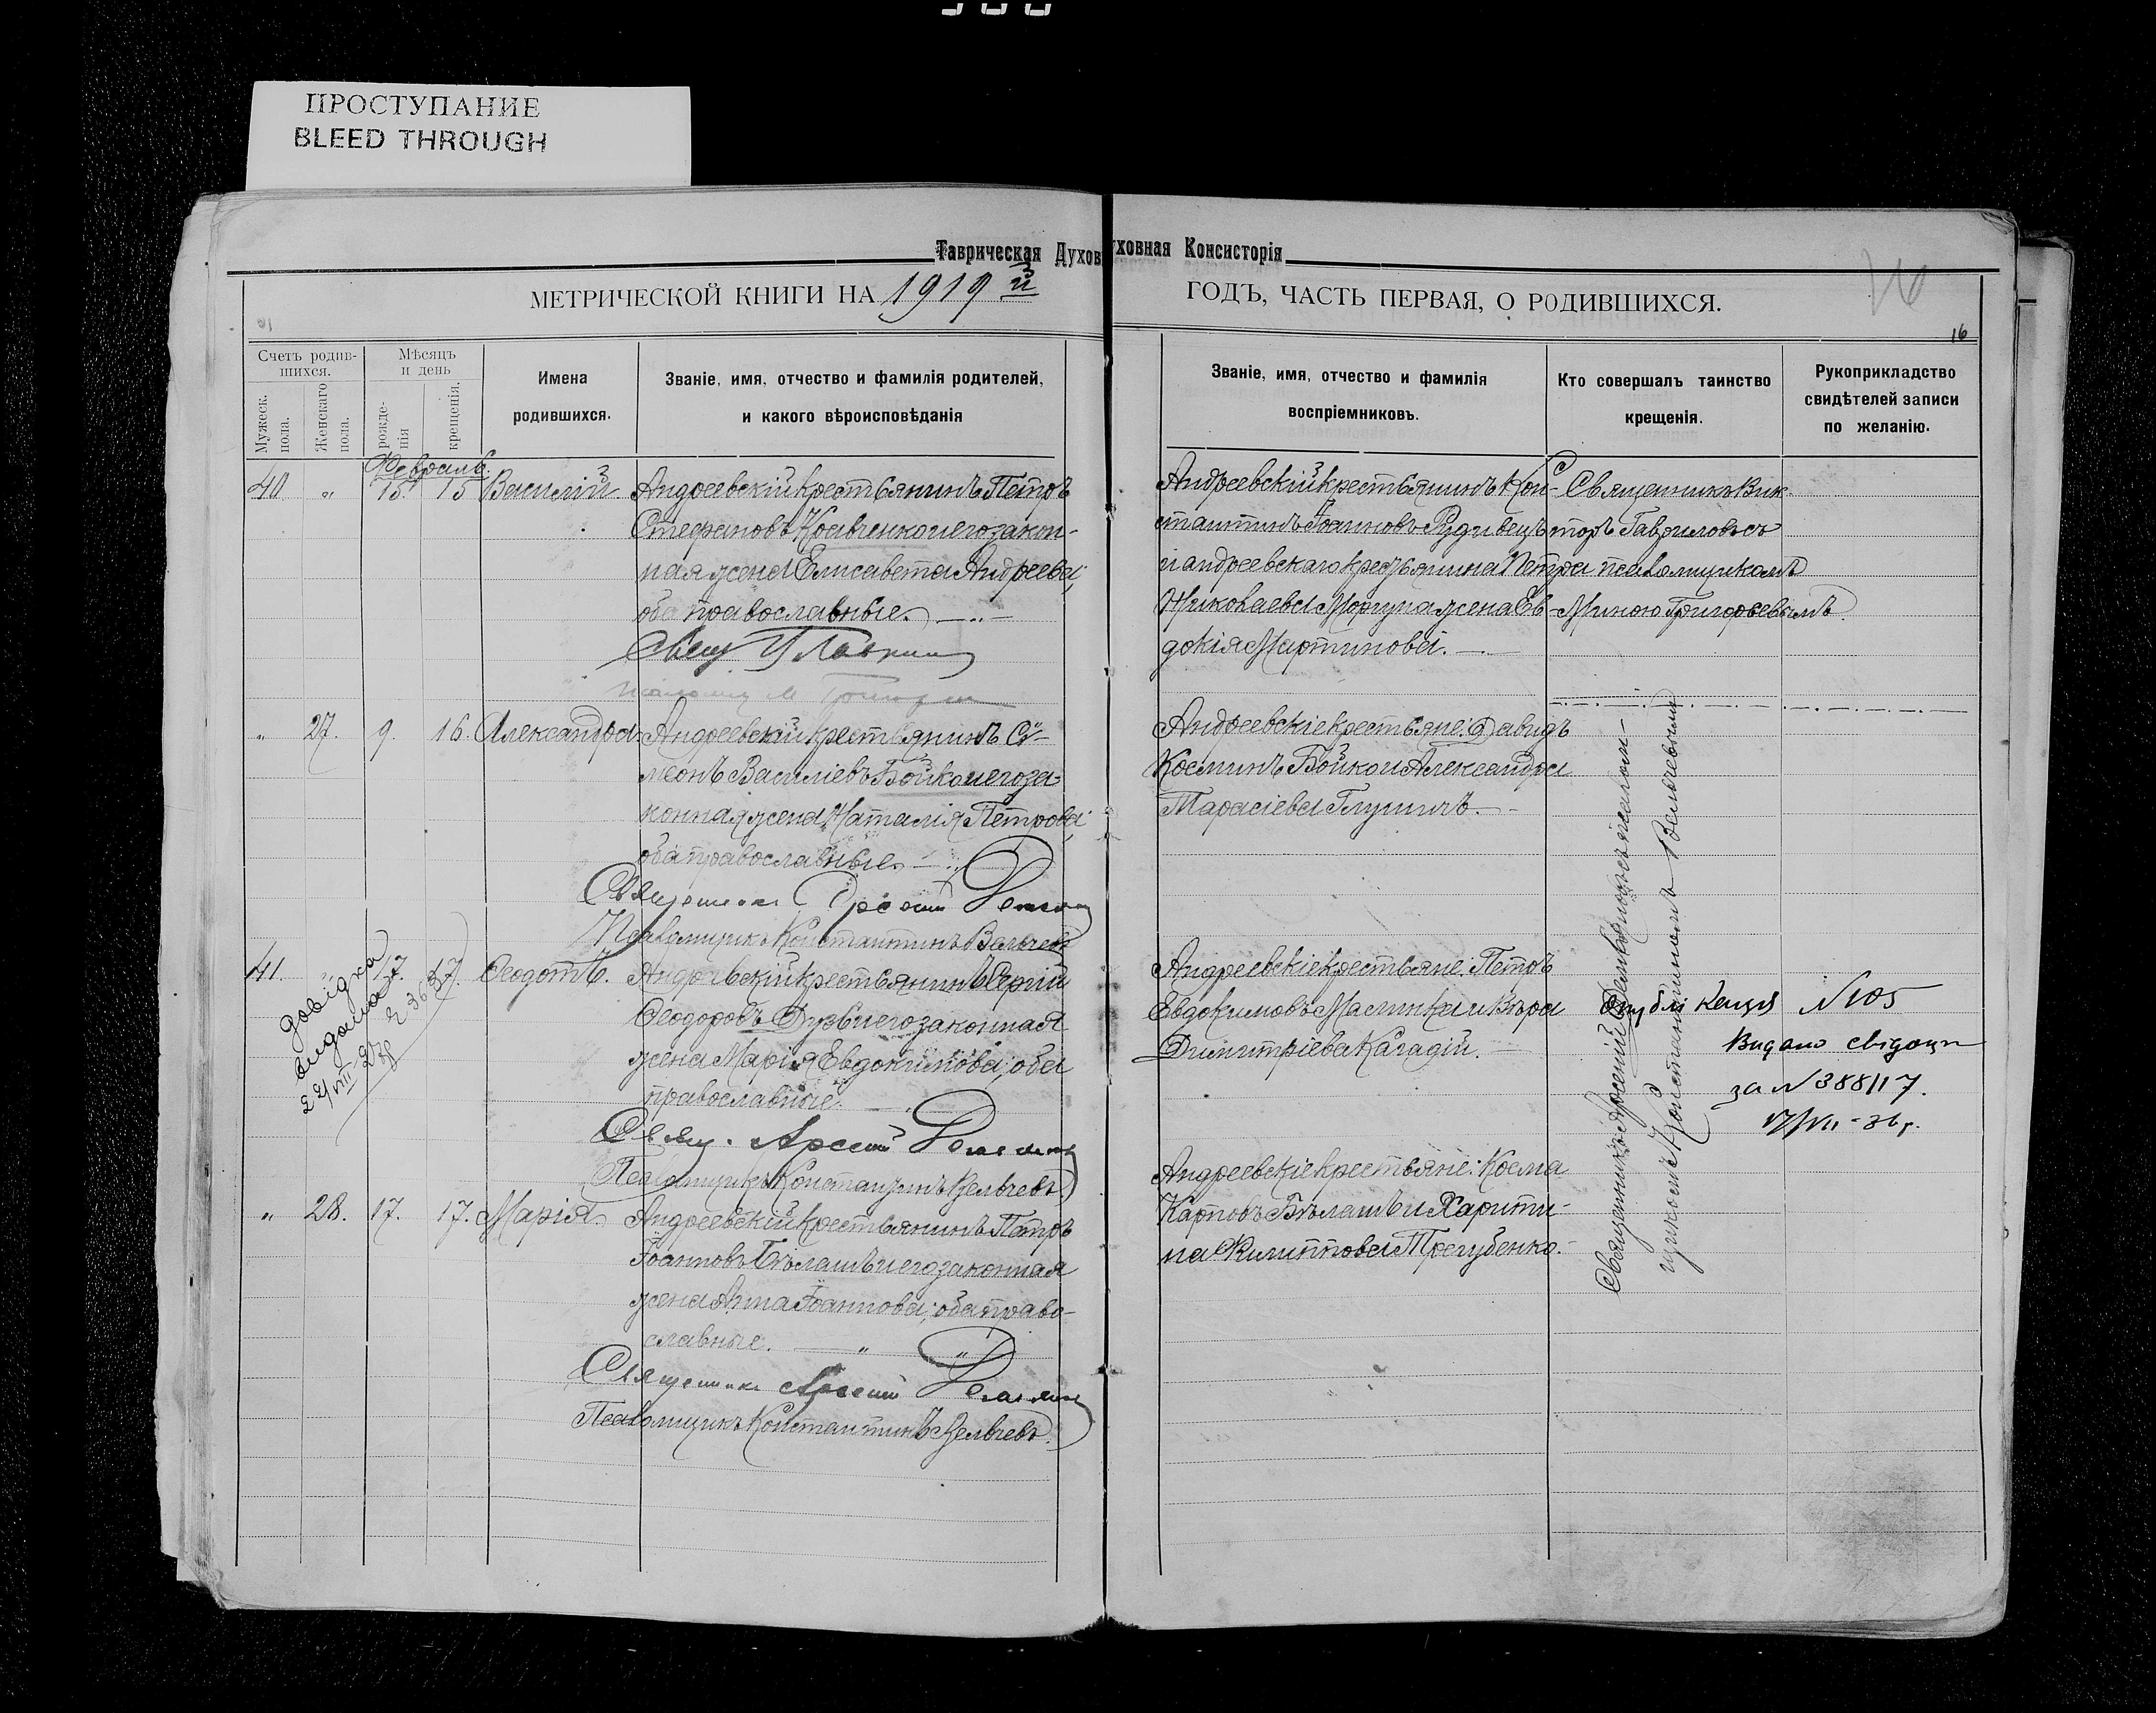 ПРОСТУПАНИЕ
BLEED THROUGH
Таврическая Духовная Консисторія
МЕТРИЧЕСКОЙ КНИГИ НА 1919 й
ГОДЪ, ЧАСТЬ ПЕРВАЯ, О РОДИВШИХСЯ.
16
16
Счетъ родив-
шихся.
Мужеск.
пола.
Женскаго
пола.
Мѣсяцъ
и день
рожде-
нія
крещенія.
Имена
родившихся.
Званіе, имя, отчество и фамилія родителей,
и какого вѣроисповѣданія
Званіе, имя, отчество и фамилія
воспріемниковъ.
Кто совершалъ таинство
крещенія.
Рукоприкладство
свидѣтелей записи
по желанію.
Февраль.
40. „ 15. 15 Василій Андреевскій крестьянинъ Петръ
Стефановъ Кравченко и его закон-
ная жена Елисавета Андреева,
оба православные.
Андреевскій крестьянинъ Кон-
стантинъ Іоанновъ Рудивецъ
и андреевскаго крестьянина Петра
Николаева Моргуна жена Ев-
докія Мартинова.
Священникъ Вик-
торъ Гавриловъ съ
псаломщикомъ
Миною Григорьевымъ
„ 27. 9. 16. Александра Андреевскій крестьянинъ Си-
меонъ Василіевъ Бойко и его за-
конная жена Наталія Петрова,
оба православные.
Священникъ Арсеній
Псаломщикъ Константинъ Вельчевъ
Андреевскіе крестьяне: Давидъ
Косминъ Бойко и Александра
Тарасіева Глушичъ.
41. „ 17. 17. Ѳеодотъ. Андреевскій крестьянинъ Сергій
Ѳеодоровъ Дузь и его законная
жена Марія Евдокимова, оба
православные.
Свящ. Арсеній
Псаломщикъ Константинъ Вельчевъ
Андреевскіе крестьяне: Петръ
Евдокимовъ Маслинка и Вѣра
Димитріева Кагадій.
довідка
видана
N 105
Видано свідоцт
за N 388/17.
„ 28. 17. 17. Марія. Андреевскій крестьянинъ Петръ
Іоанновъ Бѣлашъ и его законная
жена Анна Іоаннова; оба право-
славные.
Священникъ Арсеній
Псаломщикъ Константинъ Вельчевъ.
Андреевскіе крестьяне: Косма
Карповъ Бѣлашъ и Харити-
на Филиппова Прегубенко.
Священникъ Арсеній
щикомъ Константиномъ Вельчевымъ